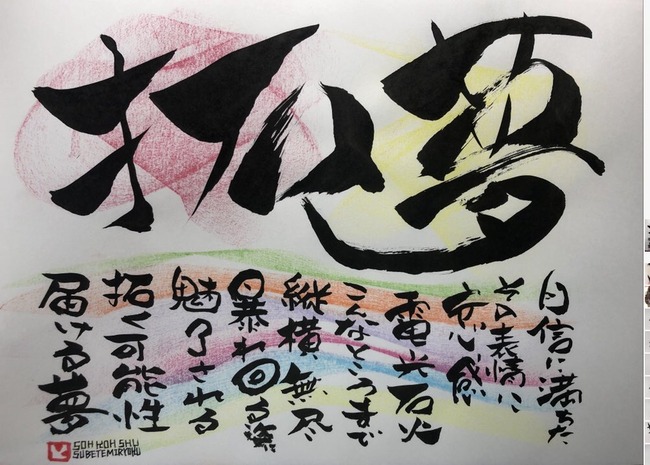 拓夢
自信に満ちた
その表情に
安心感
電光石火
こんなところまで
縦横無尽
暴れ回る姿に
魅了される
拓く可能性
届ける夢
SOH KOH SHU
SUBETEMIRYOKU